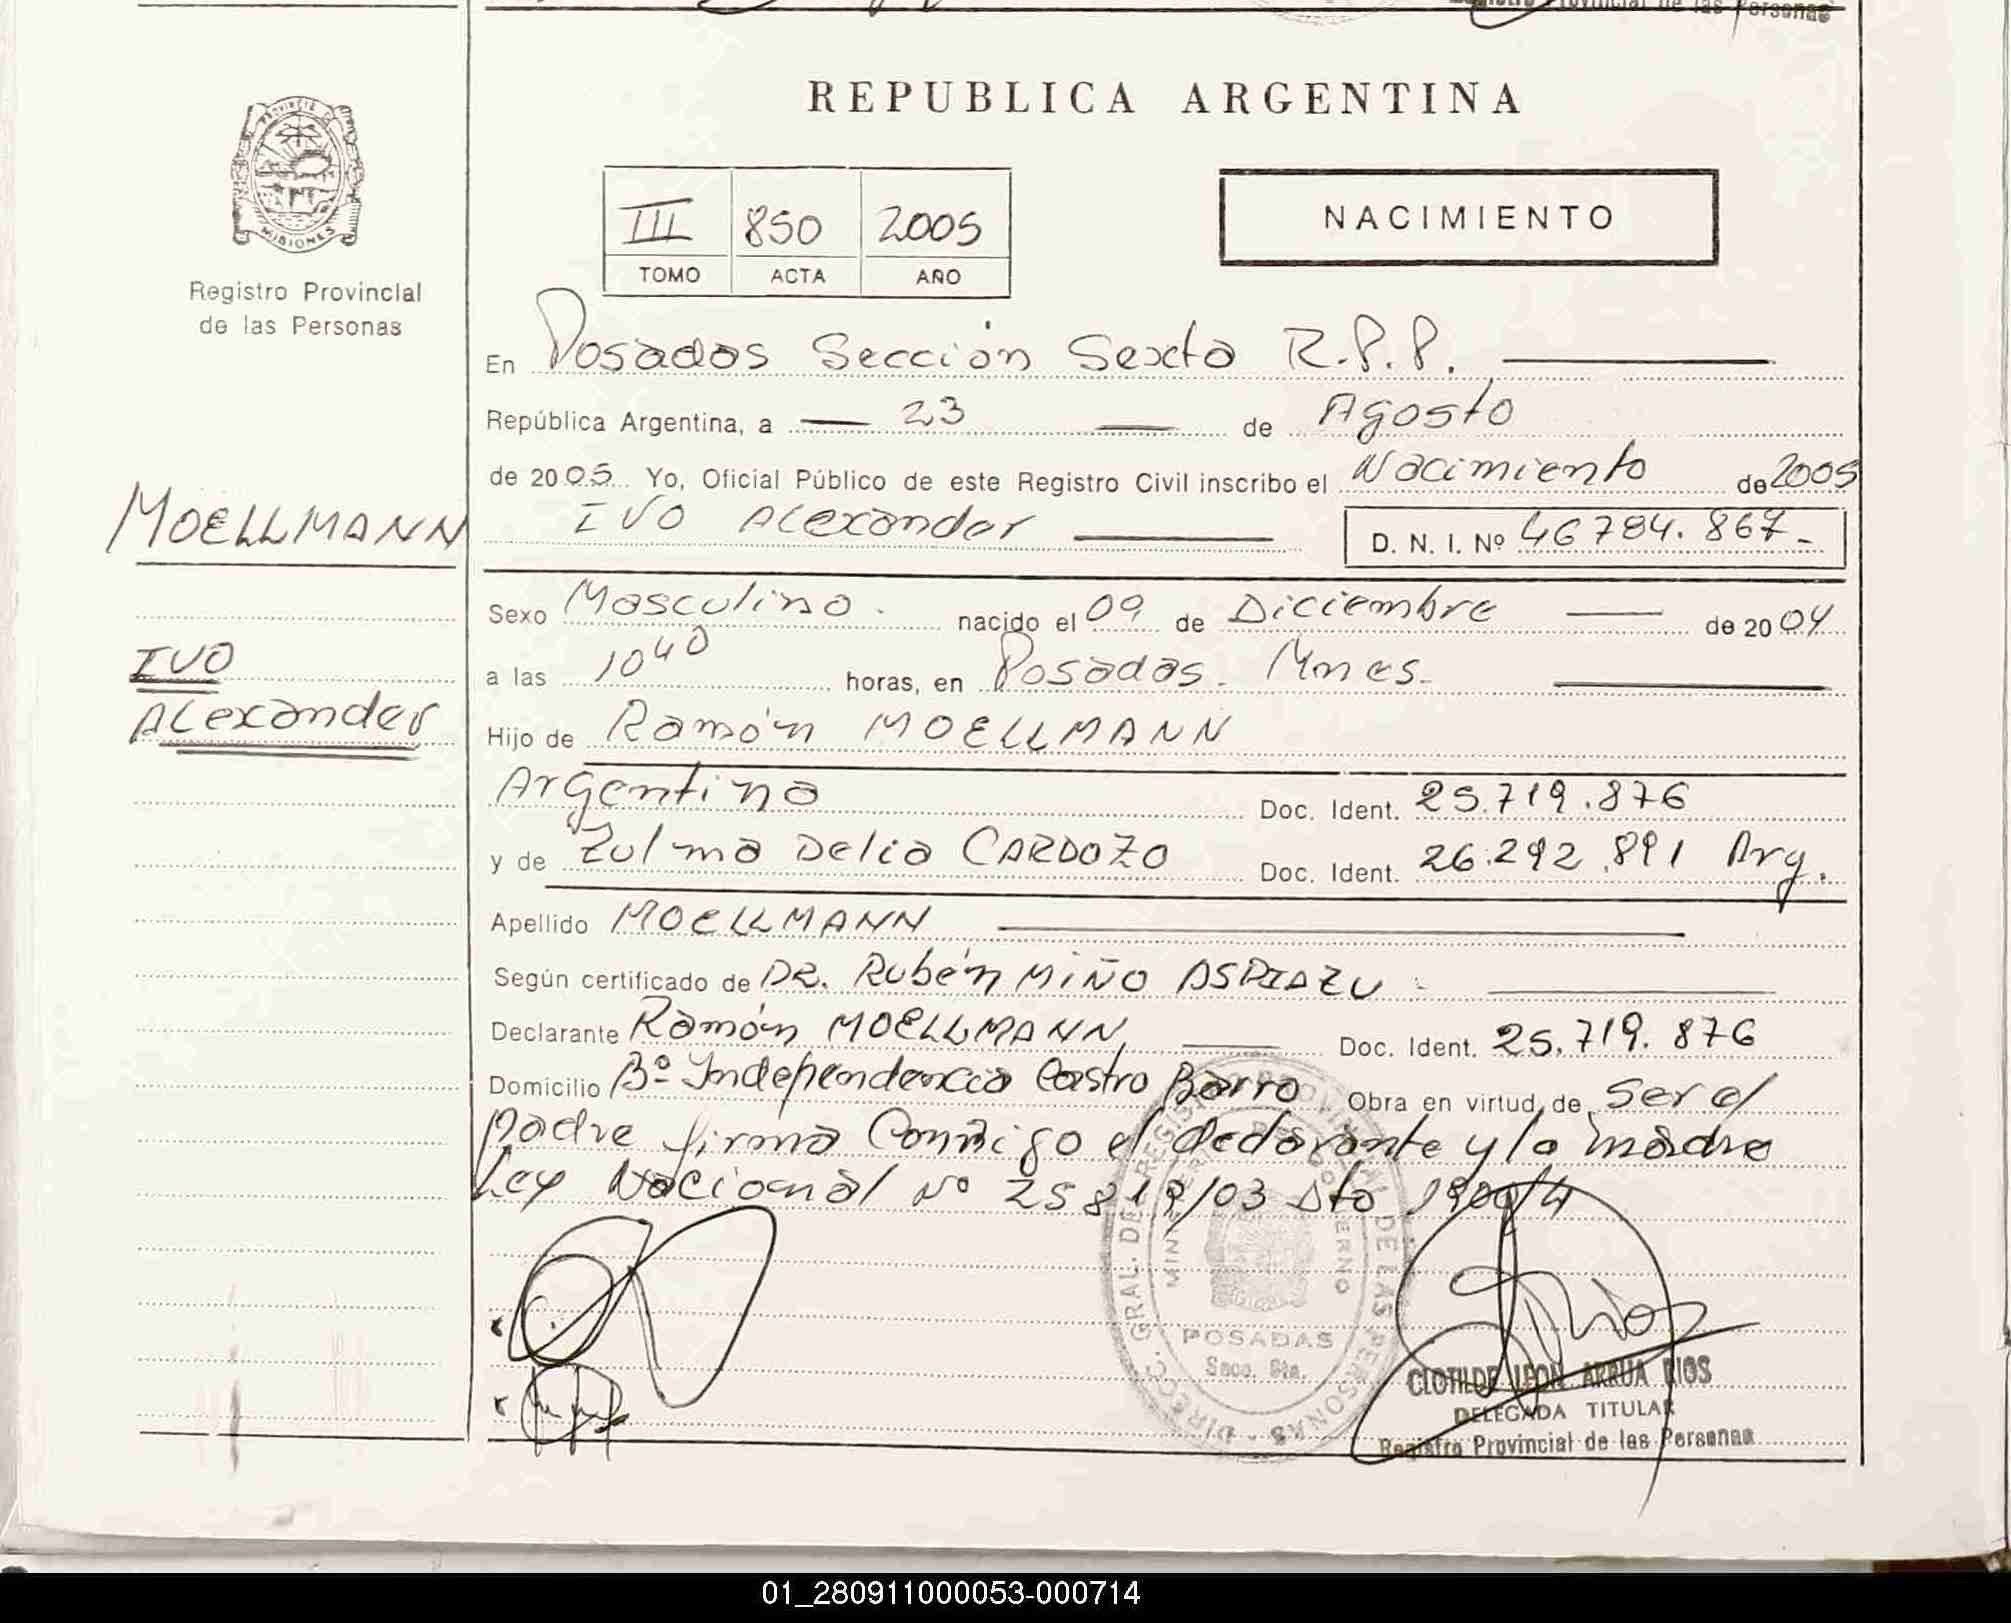 REPUBLICA ARGENTINA
PROVINCIA DE
MISIONES
Registro Provincial
de las Personas
III 850 2005
TOMO ACTA AÑO
NACIMIENTO
En Posadas Sección Sexta R.P.P.
República Argentina, a 23 de Agosto
de 2005 Yo, Oficial Público de este Registro Civil inscribo el Nacimiento de 2005
IVO Alexander D. N. I. Nº 46784.867-
MOELLMANN
IVO
Alexander
Sexo Masculino. nacido el 09 de Diciembre de 2004
a las 10 40 horas, en Posadas. Mnes.
Hijo de Ramón MOELLMANN
Argentino Doc. Ident. 25.719.876
y de Zulma Delia CARDOZO Doc. Ident. 26.292.891 Arg.
Apellido MOELLMANN
Según certificado de DR. Rubén MIÑO
Declarante Ramón MOELLMANN Doc. Ident. 25.719.876
Domicilio Bº Independencia Castro Barro Obra en virtud de Ser el
padre firma Conmigo el declarante y la madre
Ley Nacional Nº 25819/03 Dto
DIRECC. GRAL. DE REGISTRO PROVINCIAL DE LAS PERSONAS
POSADAS
Secc. 6ta.
CLOTILDE LEON ARRUA RIOS
DELEGADA TITULAR
Registro Provincial de las Personas
01_280911000053-000714